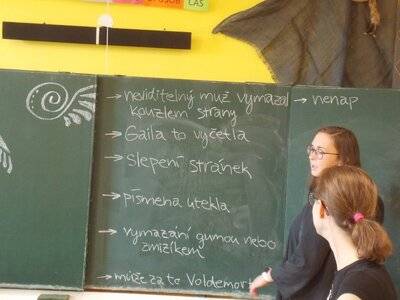 → neviditelný muž vymazal
kouzlem strany
→ Gaila to vyčetla
→ slepení stránek
→ písmena utekla
→ vymazání gumou nebo
zmizíkem
→ může za to Voldemort
→ nenap